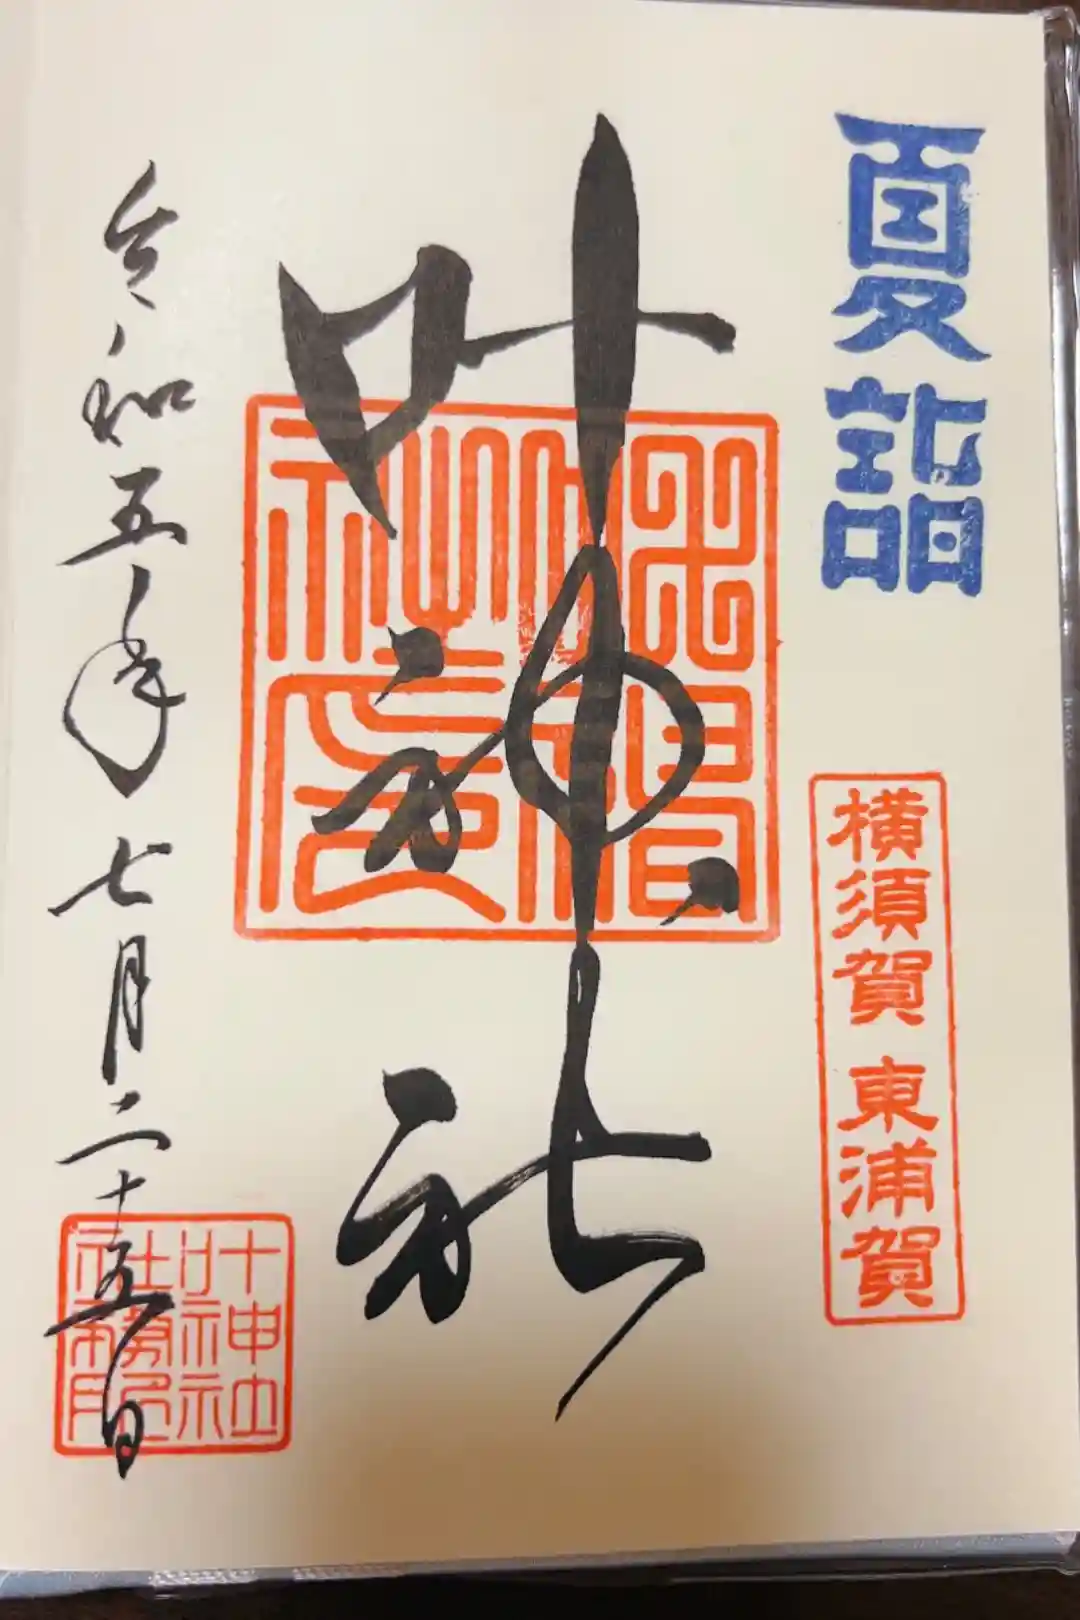 夏詣
横須賀 東浦賀
叶神社
叶神社
社務所
令和五年七月二十五日